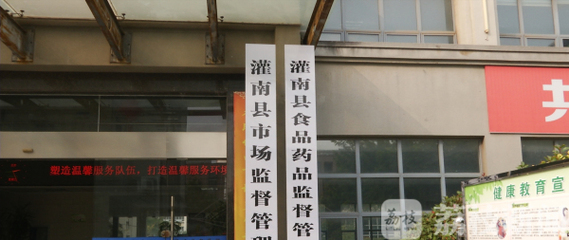 灌南县市场监督管理
灌南县食品药品监督管
塑造温馨服务队伍，打造温馨服务环境
共
健康教育宣
荔枝